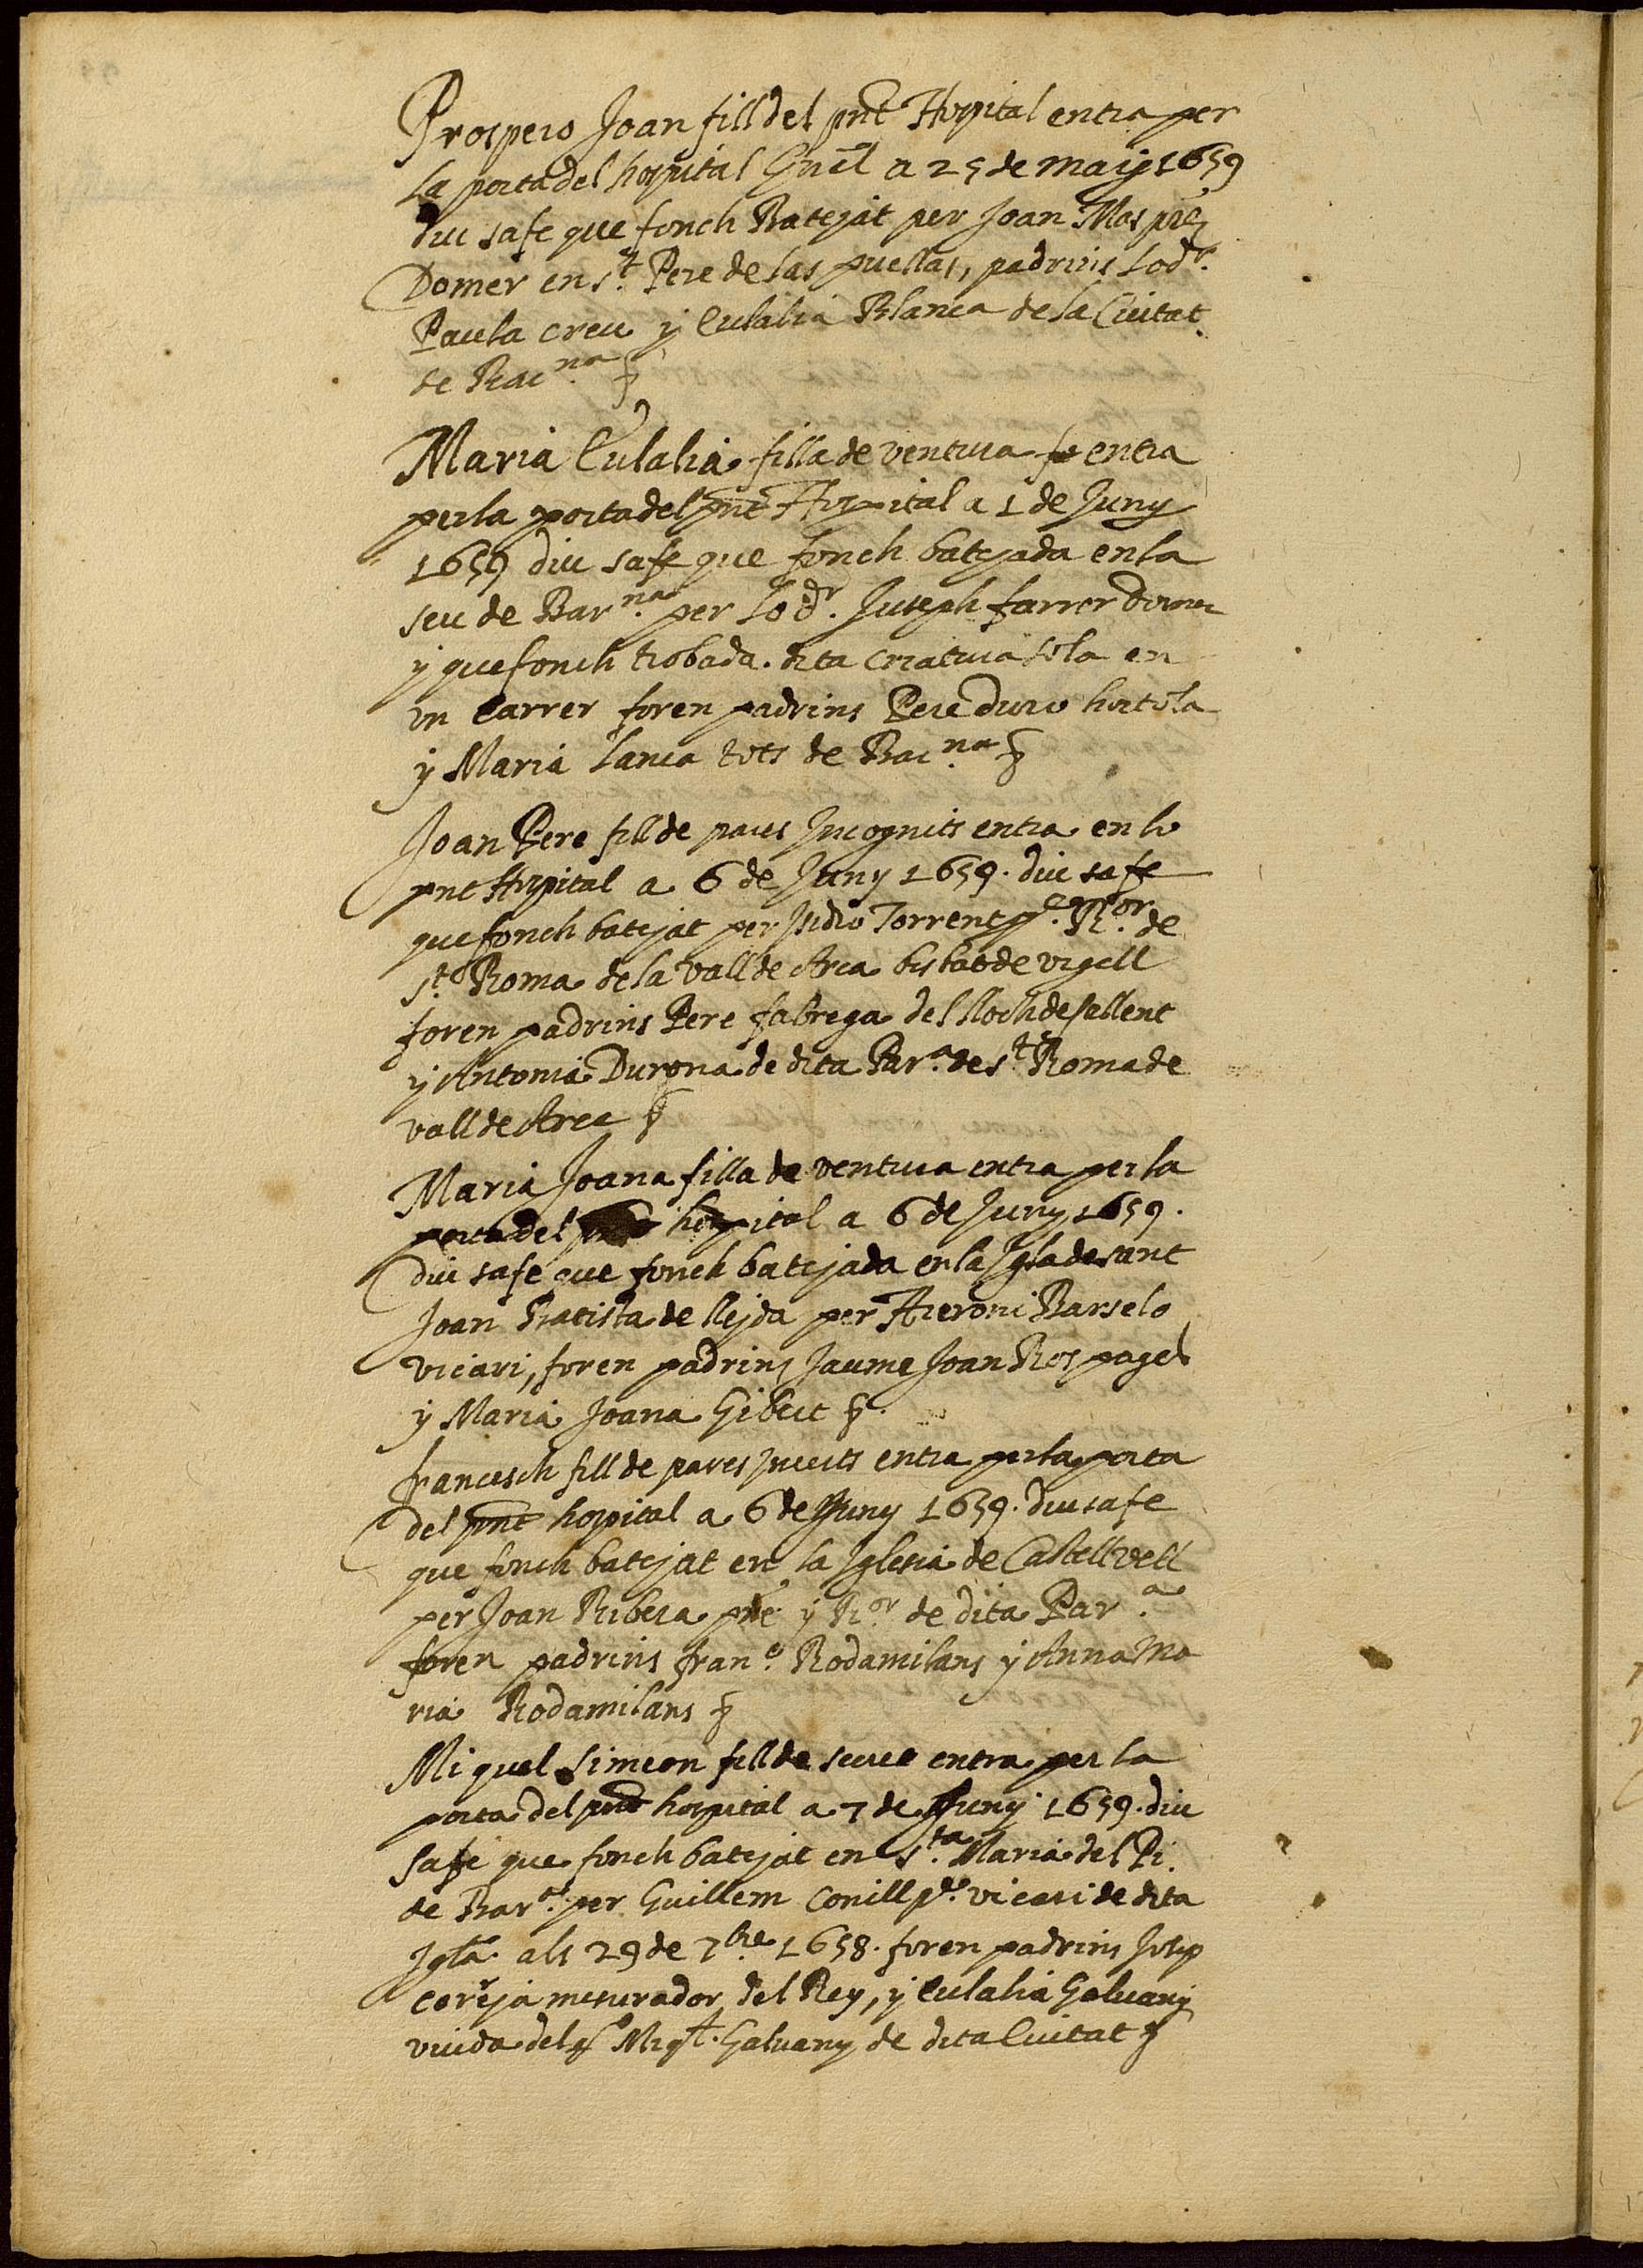 Prospero Joan fill del pnt Hospital entra per
la porta del hospital Gnl a 25 de maig 1659
diu safe que fonch Batejat per Joan Mas pre
Domer en st. Pere de las puellas, padrins Lo dr.
Paula creu y Eulalia Blanca de la Ciutat
de Barna.
Maria Eulalia filla de ventura entra
per la porta del pnt Hospital a 1 de Juny
1659 diu safe que fonch batejada en la
seu de Barna. per Lo dr. Juseph farrer domer
y que fonch trobada dita criatura sola en
un Carrer foren padrins Pere duro hortola
y Maria Lanca tots de Barna.
Joan Pere fill de pares Incognits entra en lo
pnt Hospital a 6 de Juny 1659. diu safe
que fonch batejat per Isidro Torrent pe. Ror. de
st. Roma de la vall de Area bisbat de vrgell
foren padrins Pere fabrega del lloch de sallent
y Antonia Durona de dita Para. de st. Roma de
vall de Area
Maria Joana filla de ventura entra per la
porta del pnt hospital a 6 de Juny 1659.
diu safe que fonch batejada en la Igla de sant
Joan Batista de lleyda per Hieroni Barselo
vicari, foren padrins Jaume Joan Ros pages
y Maria Joana Gibert
francesch fill de pares Incerts entra per la porta
del pnt hospital a 6 de Juny 1659. diu safe
que fonch batejat en la Iglesia de Castellvell
per Joan Ribera pre y Ror de dita Para.
foren padrins franco. Rodamilans y Anna Ma
ria Rodamilans
Miquel Simeon fill de secret entra per la
porta del pnt hospital a 7 de Juny 1659. diu
safe que fonch batejat en sta. Maria del Pi
de Bara. per Guillem Conill pre. vicari de dita
Igla. als 29 de 7bre 1658. foren padrins Josep
coreja mesurador del Rey, y Eulalia Galuany
viuda del qo Miql. Galuany de dita Ciutat